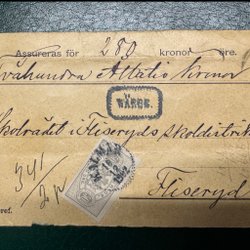 Assureras för 280 kronor öre.
Tvåhundra Åttatio kronor
WÄRDE.
Skolrådet i Fliseryds skoldistrikt
KALMAR
341
Fliseryd
ref.